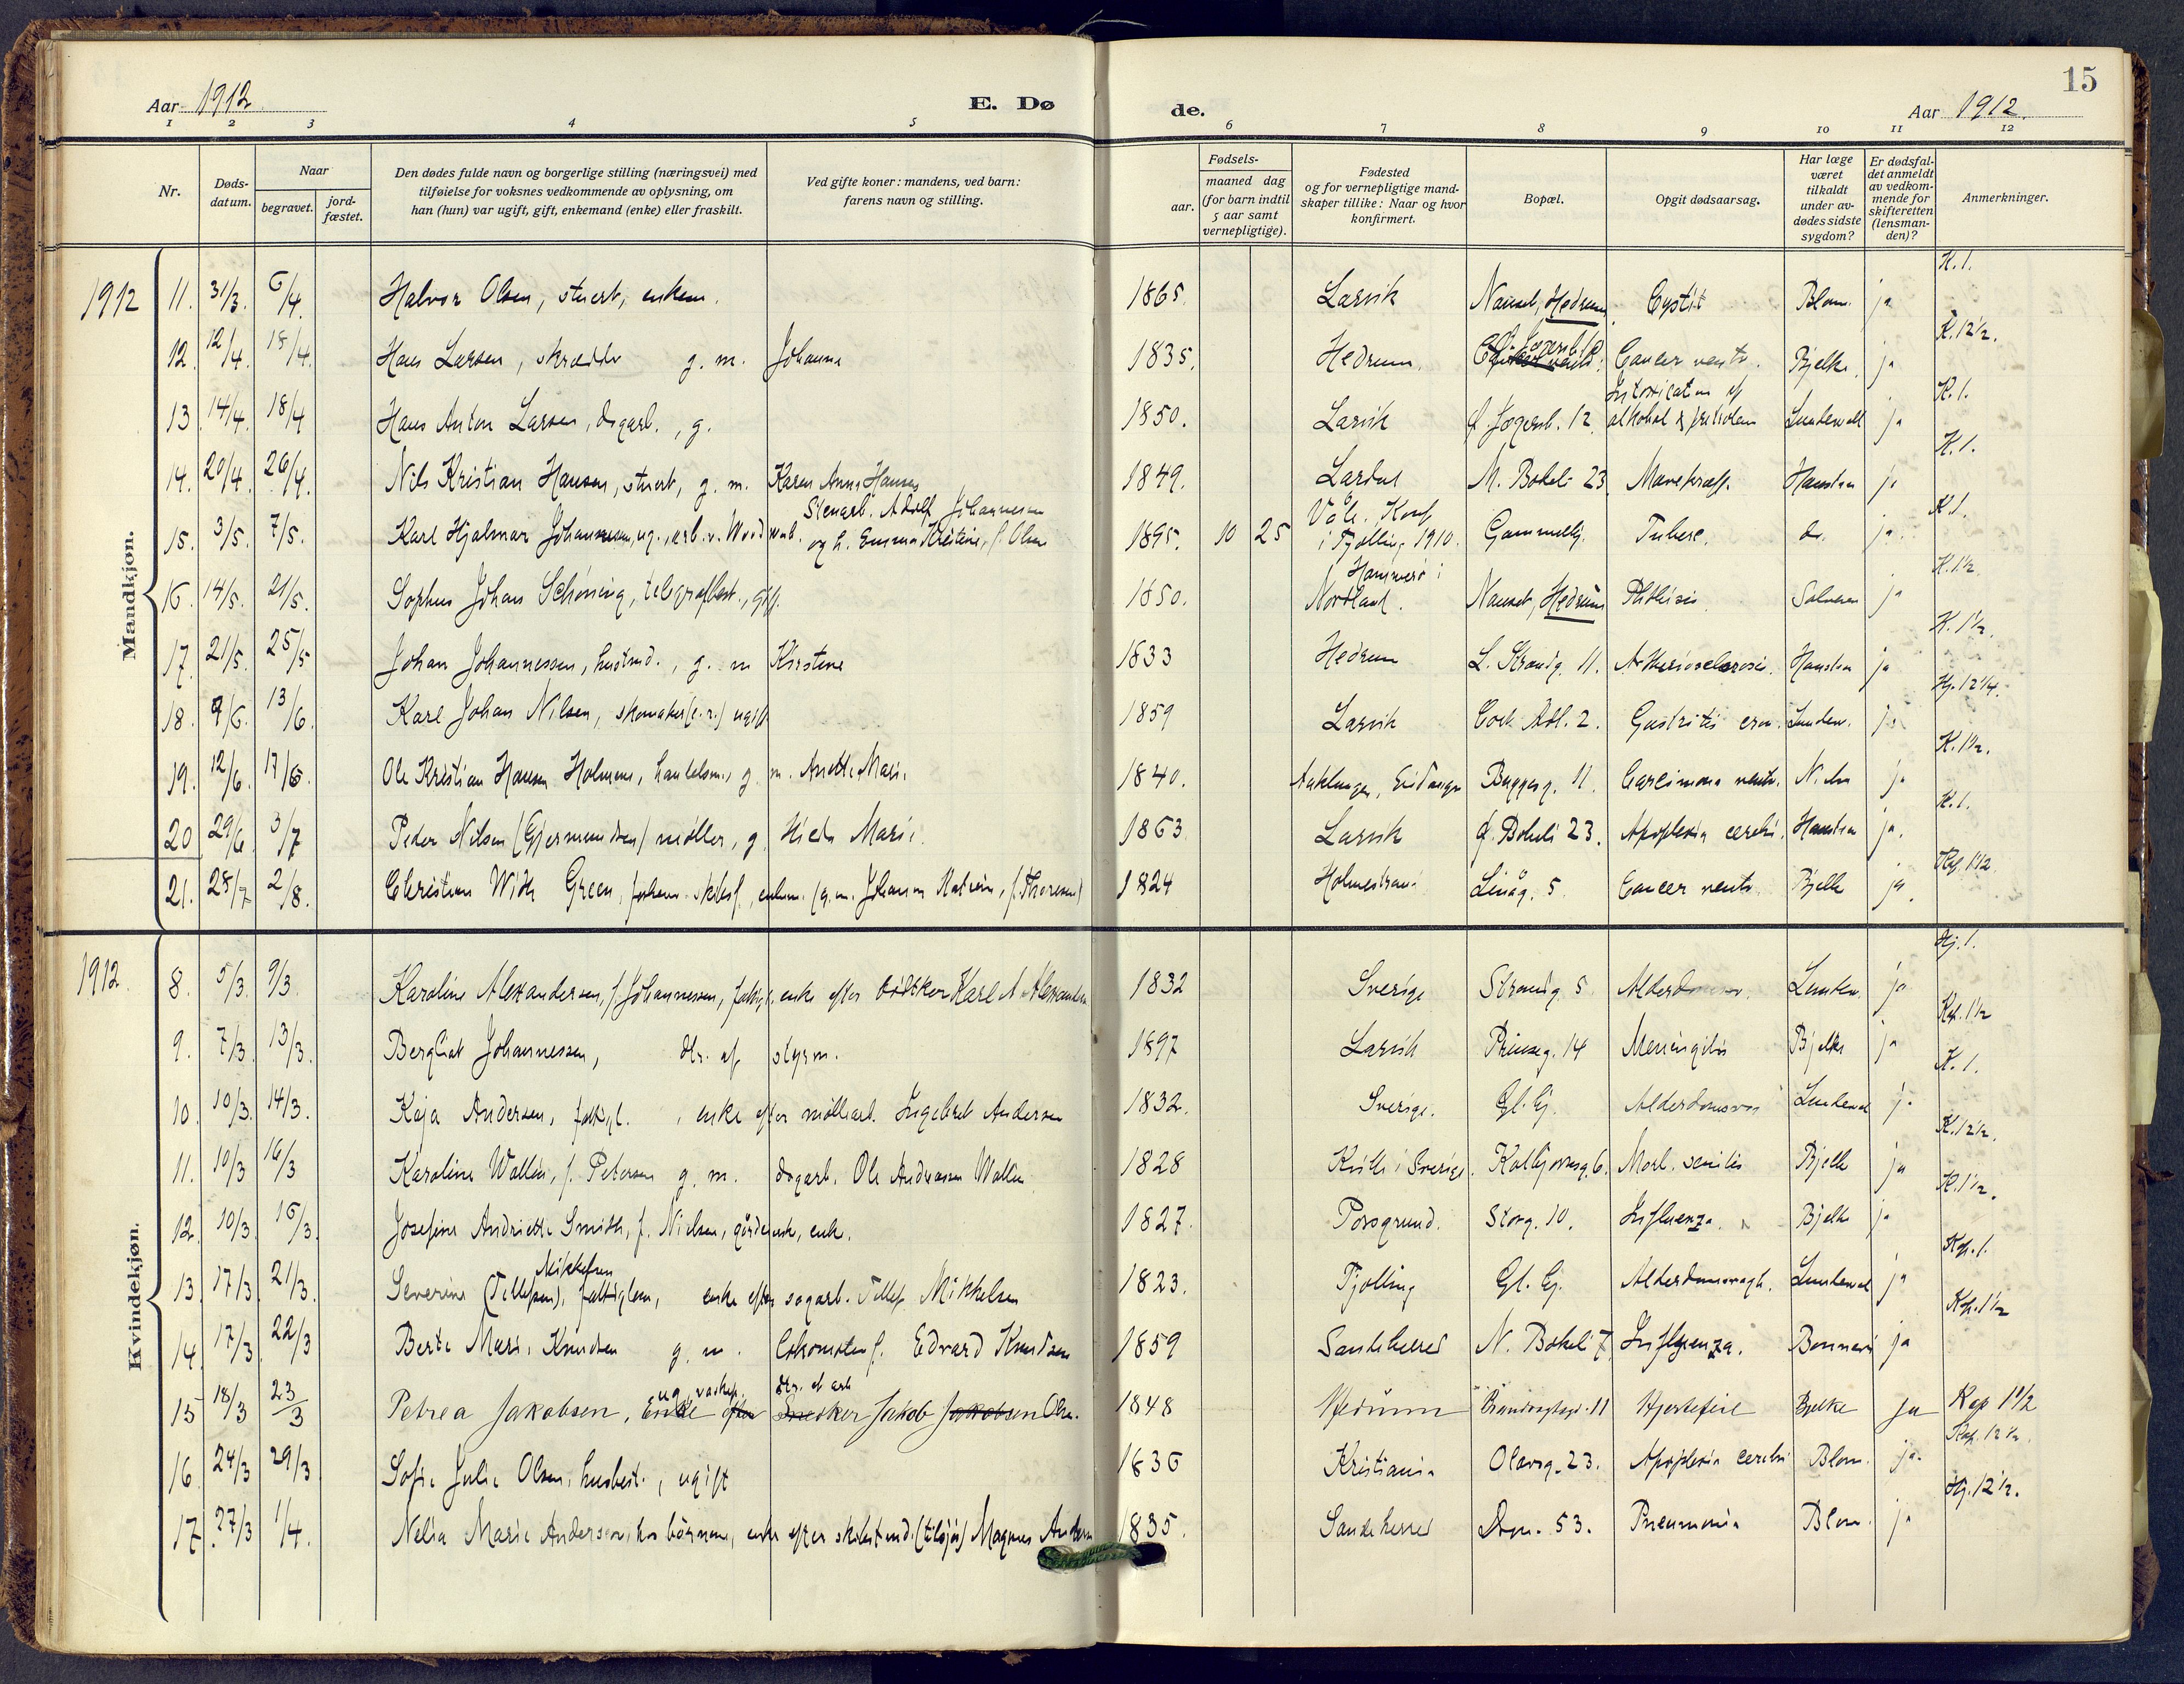 15
Aar 1912 E. Dø de. Aar 1912.
1 2 3 4 5 6 7 8 9 10 11 12
Nr. Døds-datum. Naar begravet. jord-fæstet. Den dødes fulde navn og borgerlige stilling (næringsvei) med tilføielse for voksnes vedkommende av oplysning, om han (hun) var ugift, gift, enkemand (enke) eller fraskilt. Ved gifte koner: mandens, ved barn: farens navn og stilling. Fødsels- aar. maaned dag (for barn indtil 5 aar samt vernepligtige). Fødested og for vernepligtige mandskaper tillike: Naar og hvor konfirmert. Bopæl. Opgit dødsaarsag. Har læge været tilkaldt under avdødes sidste sygdom? Er dødsfaldet anmeldt av vedkommende for skifteretten (lensmanden)? Anmerkninger.
Mandkjøn.
1912 11. 31/3. 6/4. Halvor Olsen, stuert, enkem. 1865. Larvik Nanset, Hedrum Cystit Blom. ja K. 1.
12. 12/4. 18/4. Hans Larsen, skrædder g. m. Johanna 1835. Hedrum. Cancer ventr. Bjelke. ja K. 12½.
13 14/4. 18/4 Hans Anton Larsen, dagarb., g. 1850. Larvik 12 alkohol & Lundewall ja K. 1.
14. 20/4. 26/4. Nils Kristian Hansen, stuert, g. m. Karen Anna Hansen 1849. Lardal M. Bøkeli 23 Mavekræft. Hanstea ja K. 1.
15. 3/5. 7/5. Karl Hjalmar Johannessen, ug., arb. v. Wood Stenarb. Adolf Johannesen og h. Emma Kristine, f. Olsen 1895. 10 25 Våle. Konf i Tjølling 1910. Gammelbj. Tuberc. do. ja. K. 1.
16. 14/5. 21/5. Sophus Johan Schöning, telegrafbest., gift. 1850. Hammerö i Nordland. Nanset, Hedrum Phthisis Solveren ja K. 1½.
17. 21/5. 25/5 Johan Johannessen, g. m Kirstine 1833 Hedrum L. Strandg. 11. Arteriosclerosis. Hanstea ja K. 1½.
18. 7/6. 13/6. Karl Johan Nilsen, skomaker ugift 1859 Larvik 2. Gastritis Lundew. ja Hj. 12¼.
19. 12/6. 17/6. Ole Kristian Hansen Holmen, handelsm., g. m. Anette Marie 1840. Eidanger Buggesg. 11. Carcinoma ventr. ja K. 1½.
20 29/6. 3/7 Peder Nilsen (Gjermundsen) møller, g. Marie. 1863 Larvik Ø. Bøkeli 23. Apoplexia cerebri. Hanstea ja. K. 1.
21. 28/7 2/8. Christian With Green, enkem. (g. m. Johanna f. Thoresen) 1824 Holmestrand 5. Cancer ventr. Bjelke ja. Kap. 1½.
Kvindekjøn.
1912. 8. 5/3. 9/3. Karoline Alexandersen, f. Johannessen, enke efter bödtker Karl A. Alexandersen 1832 Sverige Strandg. 5 Lundew. ja Hj. 1.
9. 7/3. 13/3. Bergliot Johannessen, dtr. af styrm. 1897 Larvik Prinseg. 14 Meningitis Bjelke ja Kap. 1½
10. 10/3. 14/3. Kaja Andersen, fattigl., enke efter møllearb. Ingebret Andersen 1832. Sverige. Gl. Gj. Lundewal ja K. 1.
11. 10/3 16/3 Karoline Wallin, f. Petersen g. m. dagarb. Ole Andreasen Wallin 1828 i Sverige. 6. Morb. senilis Bjelke ja K. 12½.
12. 10/3. 16/3. Josefine Andriette Smith, f. Nielsen, enk. 1827. Porsgrund. Storg. 10. Influenza. Bjelke ja K. 1½.
13. 17/3. 21/3. Severine (Tellefsen), Mikkelsen fattiglem, enke efter sagarb. Tellef Mikkelsen 1823. Tjølling Gl. Gj. Lundewal ja Kap. 1.
14. 17/3. 22/3 Berte Marie Knudsen g. m. lokomotivf. Edvard Knudsen 1859 Sandeherred N. Bøkeli 7 Influenza. Bonnevi ja Kap. 1½
15 18/3 23/3 Petrea Jakobsen, ug. Enke efter dtr. af Snedker Jakob Jakobsen Olsen. 1848 Hedrum 11 Hjertefeil Bjelke ja Kap 1½
16 24/3 29/3 Sofie Julie Olsen, husbest., ugift 1836 Kristiania Olavsg. 23. Apoplexia cerebri Blom. ja. Kap. 12½.
17. 27/3 1/4. Nelia Marie Andersen, hos börnene, enke efter Magnus Andersen 1835. Sandeherred 53. Pneumonia Blom. ja Hj. 12½.